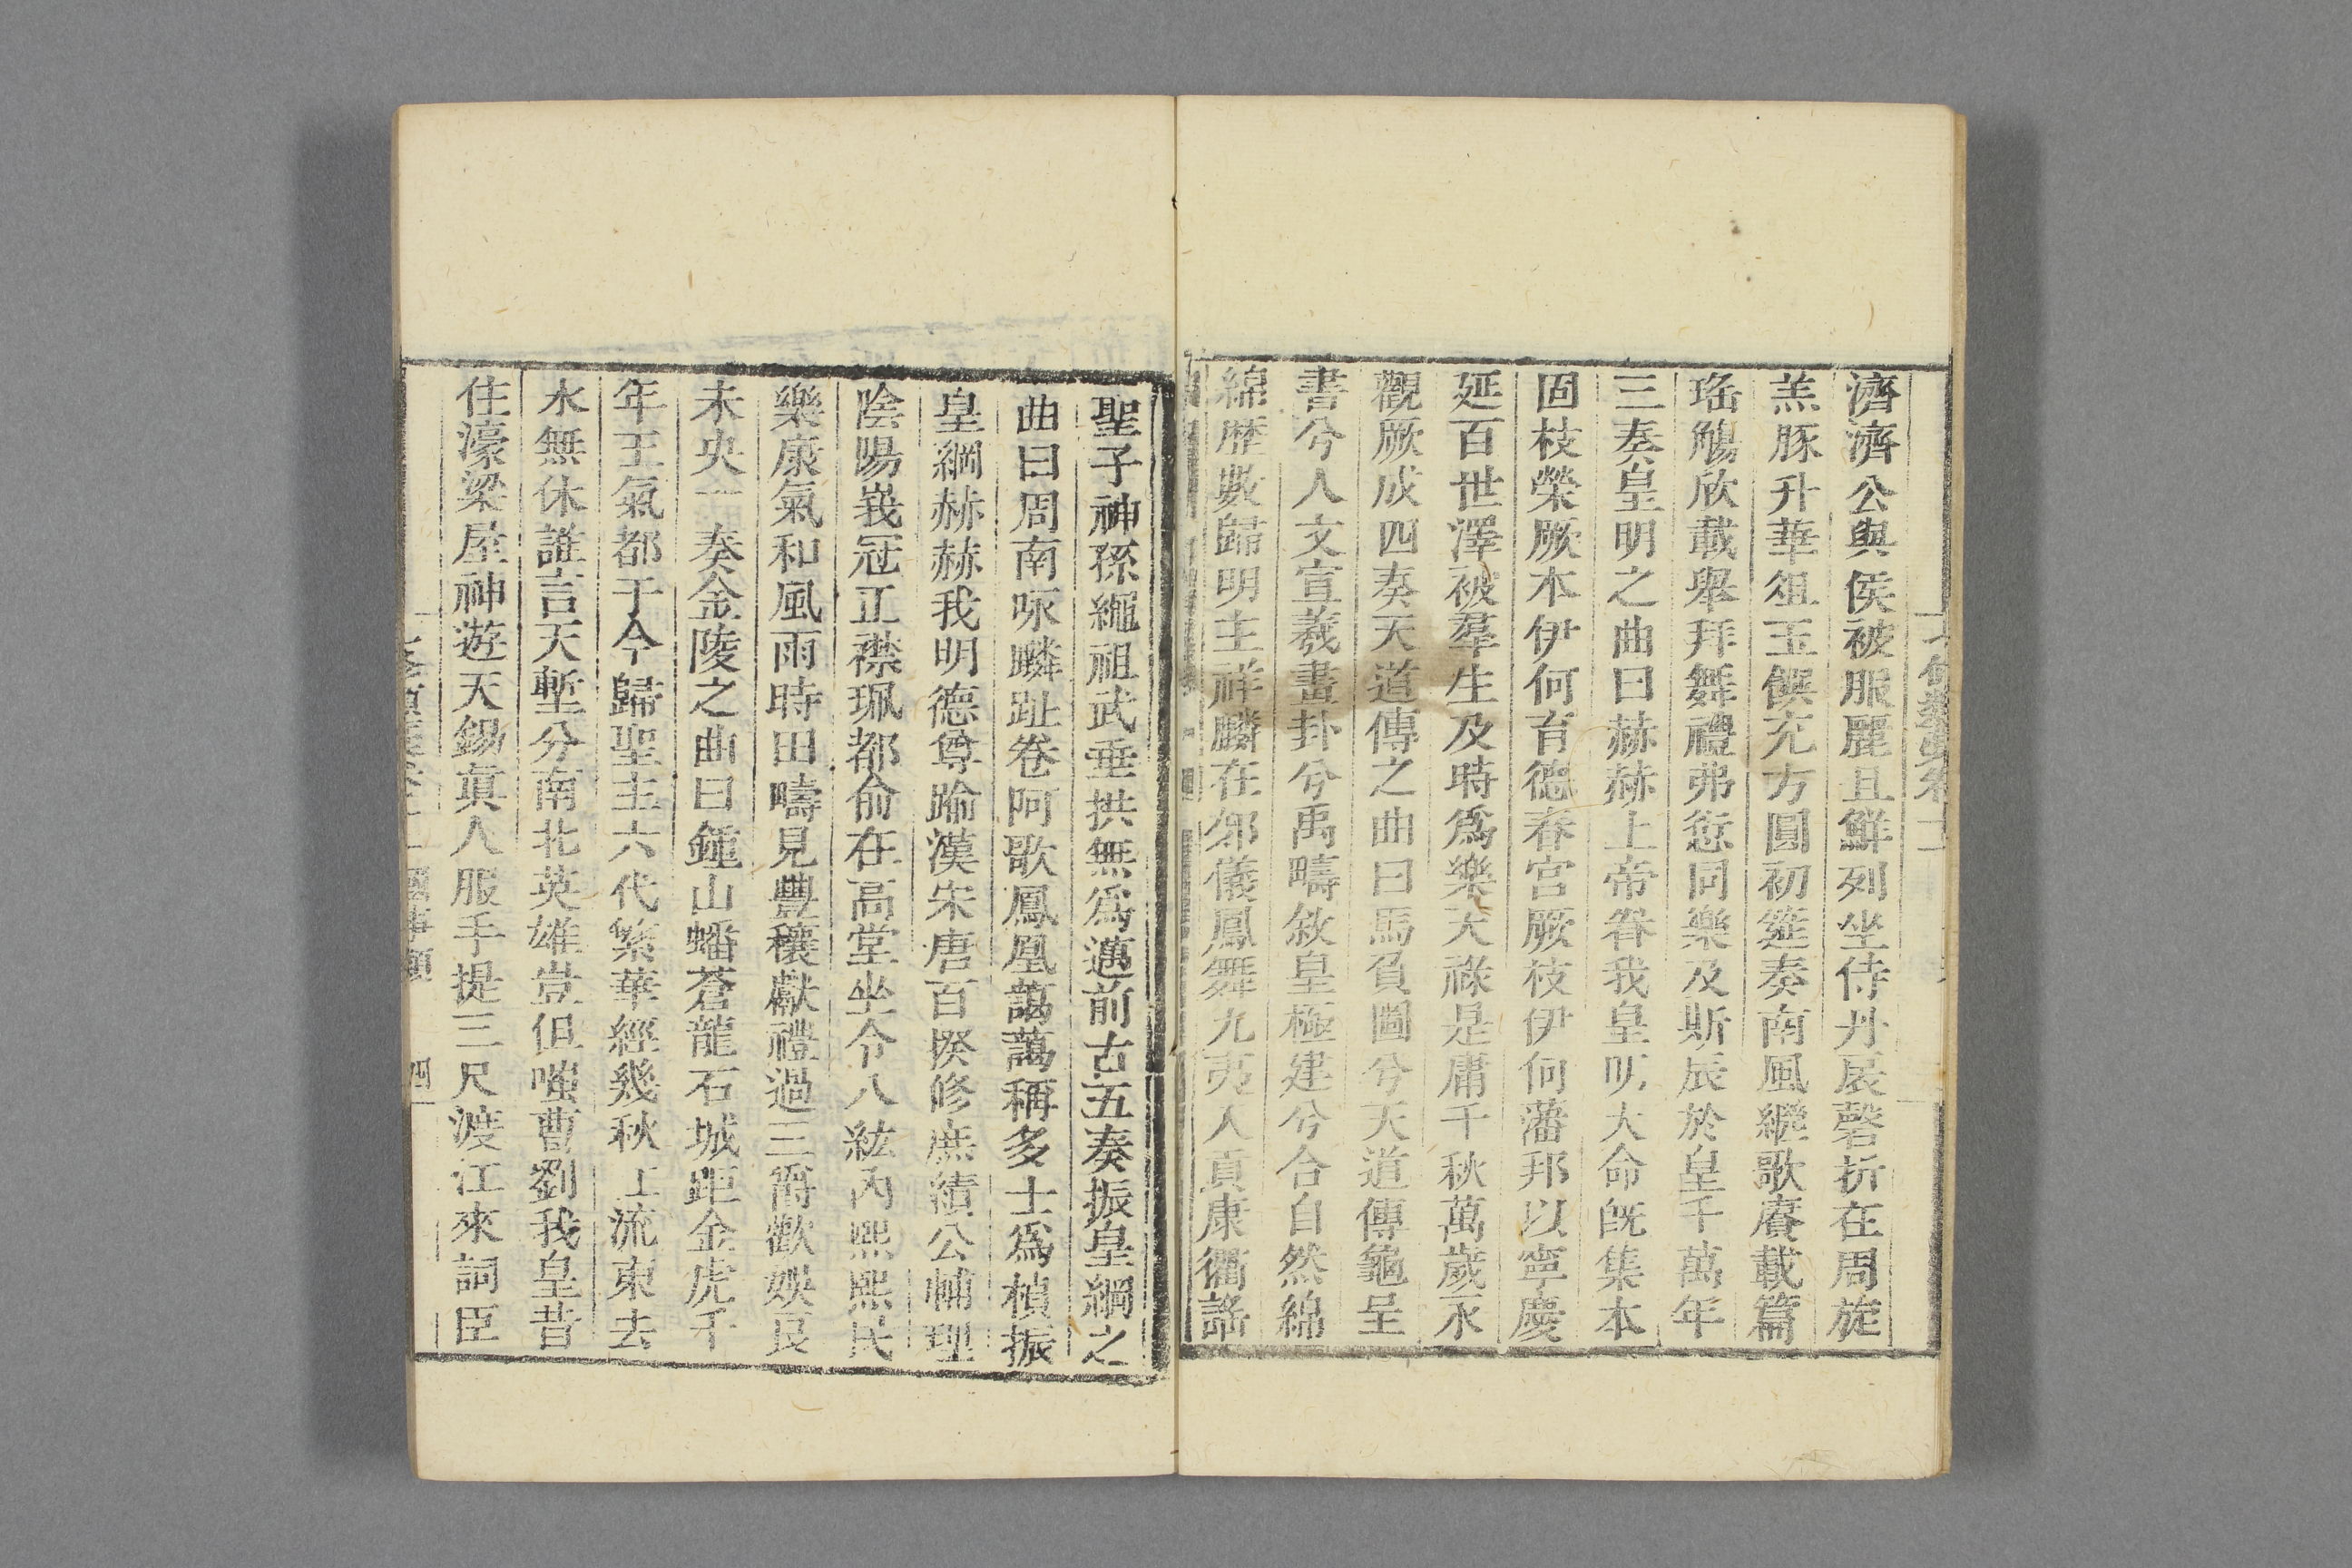 濟濟公與侯被服麗且鮮列坐侍丹扆磬折在周旋
羔豚升華俎玉饌充方圓初筵奏南風繼歌賡載篇
瑤觴欣載舉拜舞禮弗愆同樂及斯辰於皇千萬年
三奏皇明之曲曰赫赫上帝眷我皇明大命旣集本
固枝榮厥本伊何育德春宮厥枝伊何藩邦以寧慶
延百世澤被羣生及時爲樂天祿是庸千秋萬歲永
觀厥成四奏天道傳之曲曰馬負圖兮天道傳龜呈
書兮人文宣羲畫卦兮禹疇敘皇極建兮合自然綿
綿歷數歸明主祥麟在郊儀鳳舞九夷入貢康衢謠
聖子神孫繩祖武垂拱無爲邁前古五奏振皇綱之
曲曰周南咏麟趾卷阿歌鳳凰藹藹稱多士爲楨振
皇綱赫赫我明德尊踰漢宋唐百揆修庶績公輔理
陰陽峩冠正襟珮都俞在高堂坐令八紘內熙熙民
樂康氣和風雨時田疇見豐穰獻禮過三爵歡娛良
未央一奏金陵之曲曰鍾山蟠蒼龍石城踞金虎千
年王氣都于今歸聖主六代繁華經幾秋江流東去
水無休誰言天塹分南北英雄豈但嗤曹劉我皇昔
住濠梁屋神遊天錫眞人服手提三尺渡江來詞臣
四